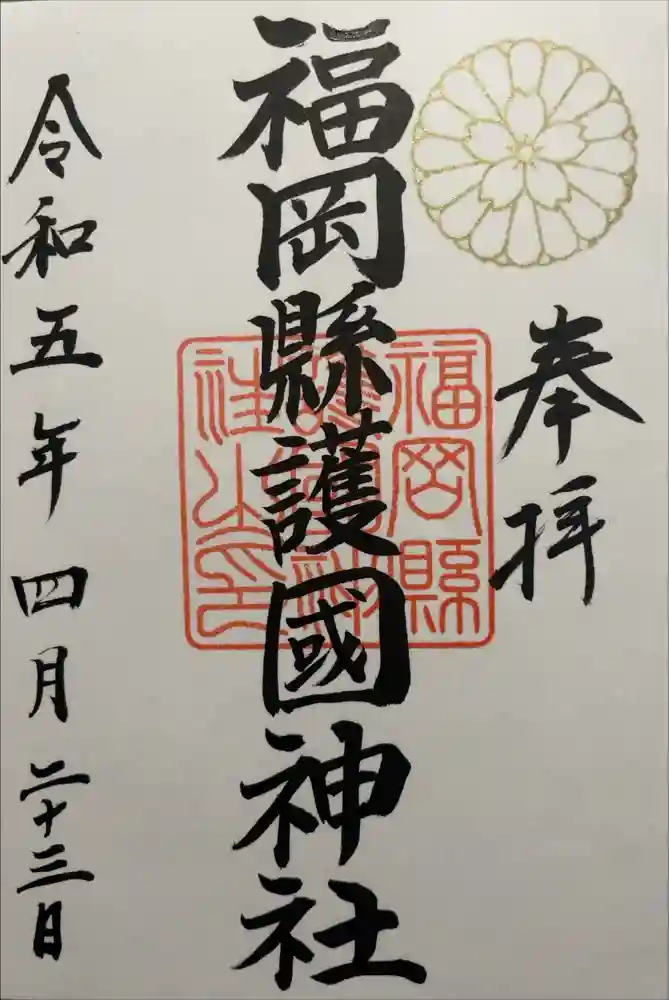 奉拝
福岡縣護國神社
福岡縣
護國神
社之印
令和五年四月二十三日